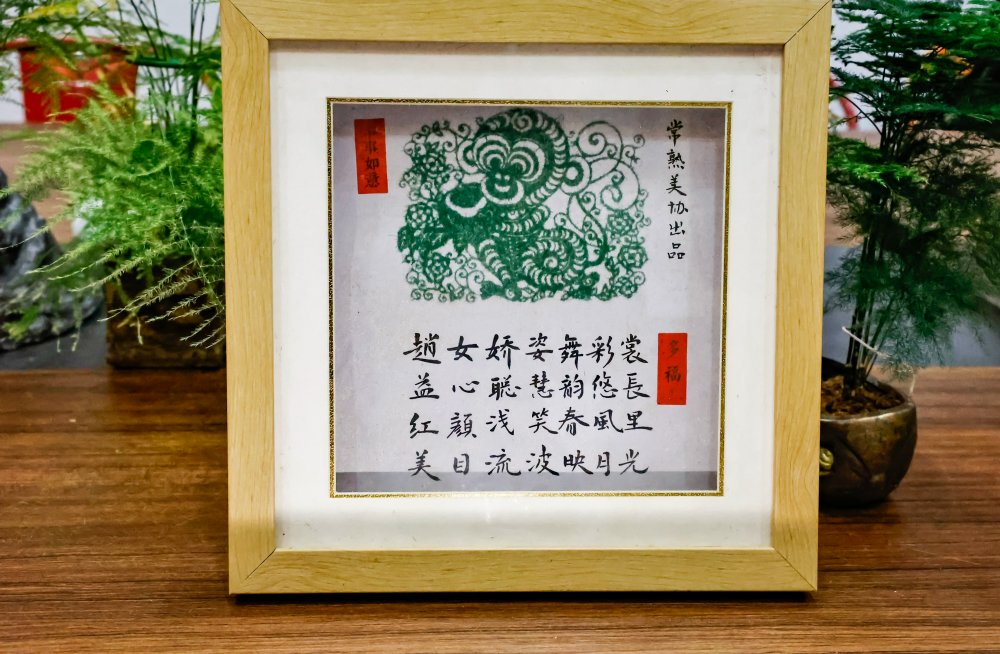 常熟美协出品
事如意
趙女娇姿舞彩裳
益心聪慧韵悠長
红顔浅笑春風里
美目流波映月光
多福